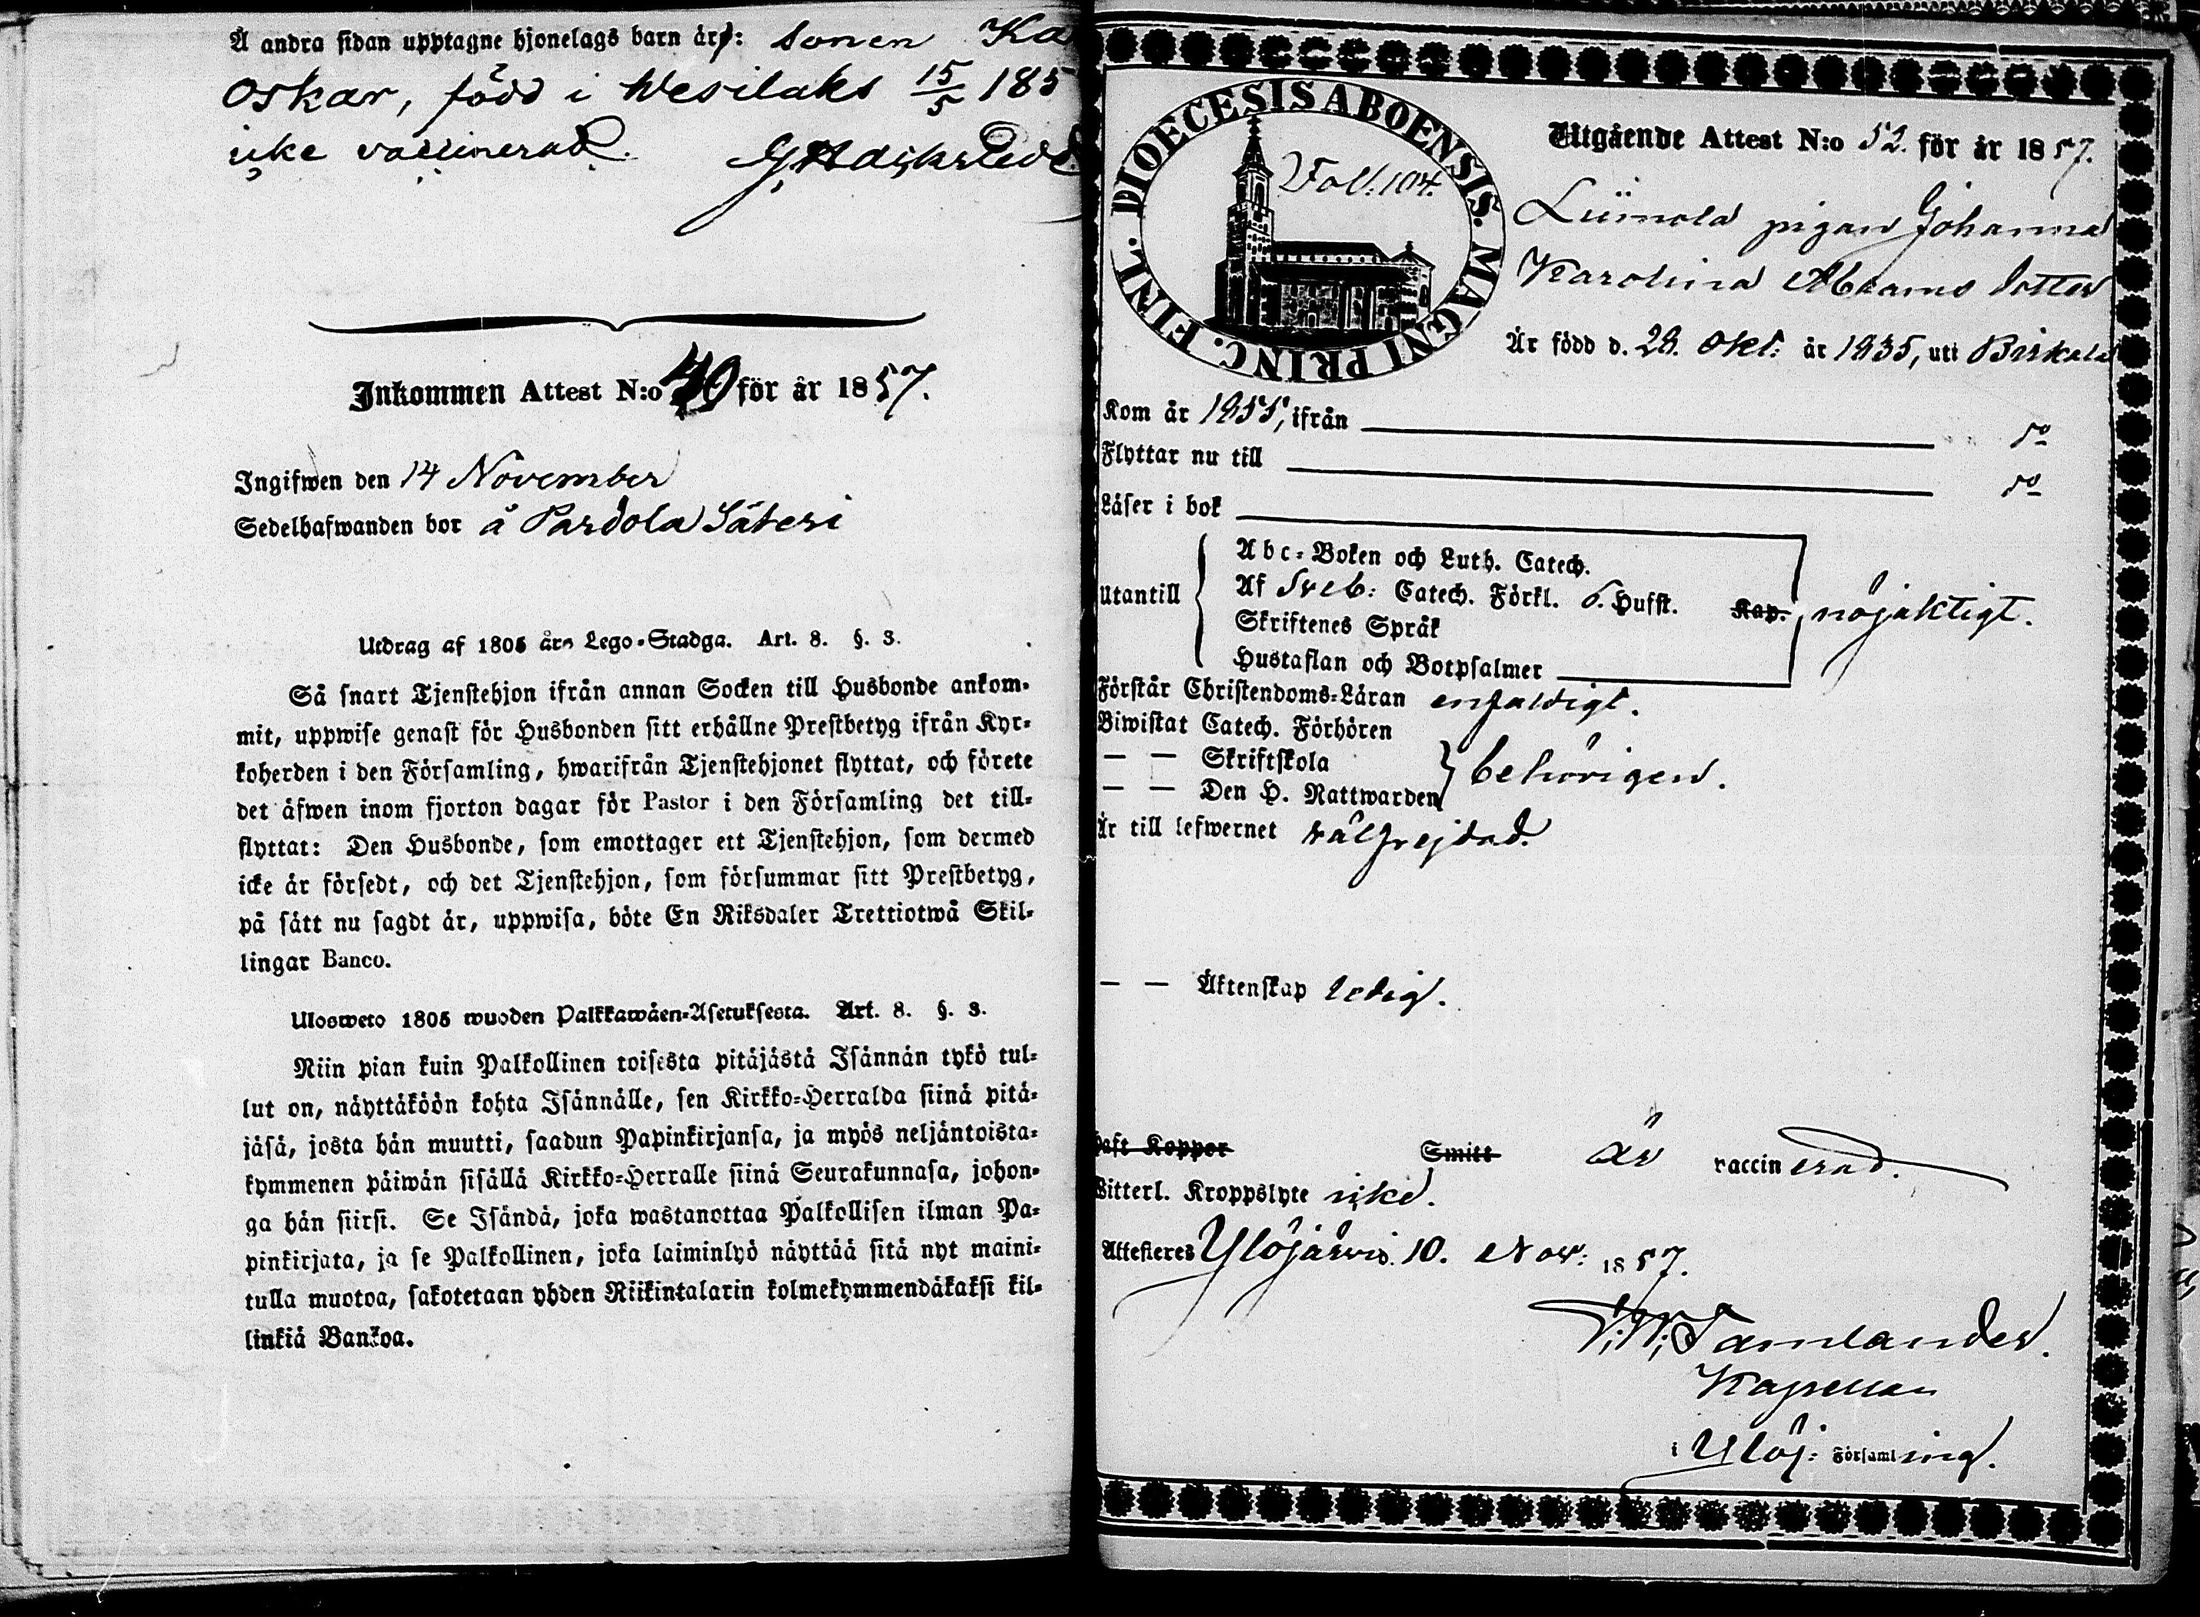 Å andra sidan upptagne hjonelags barn är: sonen Ka
Oskar, född i Wesilaks 15/5 185
icke vaccinerad.
Inkommen Attest N:o 40 för år 1857.
Ingifwen den 14 November
Sedelhafwanden bor å Pardola Säteri
Utdrag af 1805 års Lego-Stadga. Art. 8. §. 3.
Så snart Tjenstehjon ifrån annan Socken till Husbonde ankom-
mit, uppwise genast för Husbonden sitt erhållne Prestbetyg ifrån Kyr-
koherden i den Församling, hwarifrån Tjenstehjonet flyttat, och förete
det äfwen inom fjorton dagar för Pastor i den Församling det till-
flyttat: Den Husbonde, som emottager ett Tjenstehjon, som dermed
icke är försedt, och det Tjenstehjon, som försummar sitt Prestbetyg,
på sätt nu sagdt är, uppwisa, böte En Riksdaler Trettiotwå Skil-
lingar Banco.
Ulosweto 1805 wuoden Palkkawäen-Asetuksesta. Art. 8. §. 3.
Niin pian kuin Palkollinen toisesta pitäjästä Isännän tykö tul-
lut on, näyttäköön kohta Isännälle, sen Kirkko-Herralda siinä pitä-
jäsä, josta hän muutti, saadun Papinkirjansa, ja myös neljäntoista-
kymmenen päiwän sisällä Kirkko-Herralle siinä Seurakunnasa, johon-
ga hän siirsi. Se Isändä, joka wastanottaa Palkollisen ilman Pa-
pinkirjata, ja se Palkollinen, joka laiminlyö näyttää sitä nyt maini-
tulla muotoa, sakotetaan yhden Riikintalarin kolmekymmendäkaksi kil-
linkiä Bankoa.
DIOECESIS ABOENSIS. MAGNI PRINC. FINL.
Fol. 104.
Utgående Attest N:o 52. för år 1857.
pigan Johanna
Karolina Abrams dotter
Är född d. 28. Okt: år 1835, uti Birkala
Kom år 1855, ifrån
Flyttar nu till
Läser i bok
utantill
Abc-Boken och Luth. Catech.
Af Sveb: Catech. Förkl. 6. Hufst. Kap. nöjaktigt.
Skriftenes Språk
Hustaflan och Botpsalmer
Förstår Christendoms-Läran enfaldigt.
Biwistat Catech. Förhören
— — Skriftskola
behörigen.
— — Den H. Nattwarden
Är till lefwernet välfrejdad.
— — Äktenskap ledig.
Haft Koppor Smitt är vaccinerad.
Witterl. Kroppslyte icke.
Attesteres Ylöjärvi. 10. Nov: 1857.
Kapellan
i Ylöj: Församling.